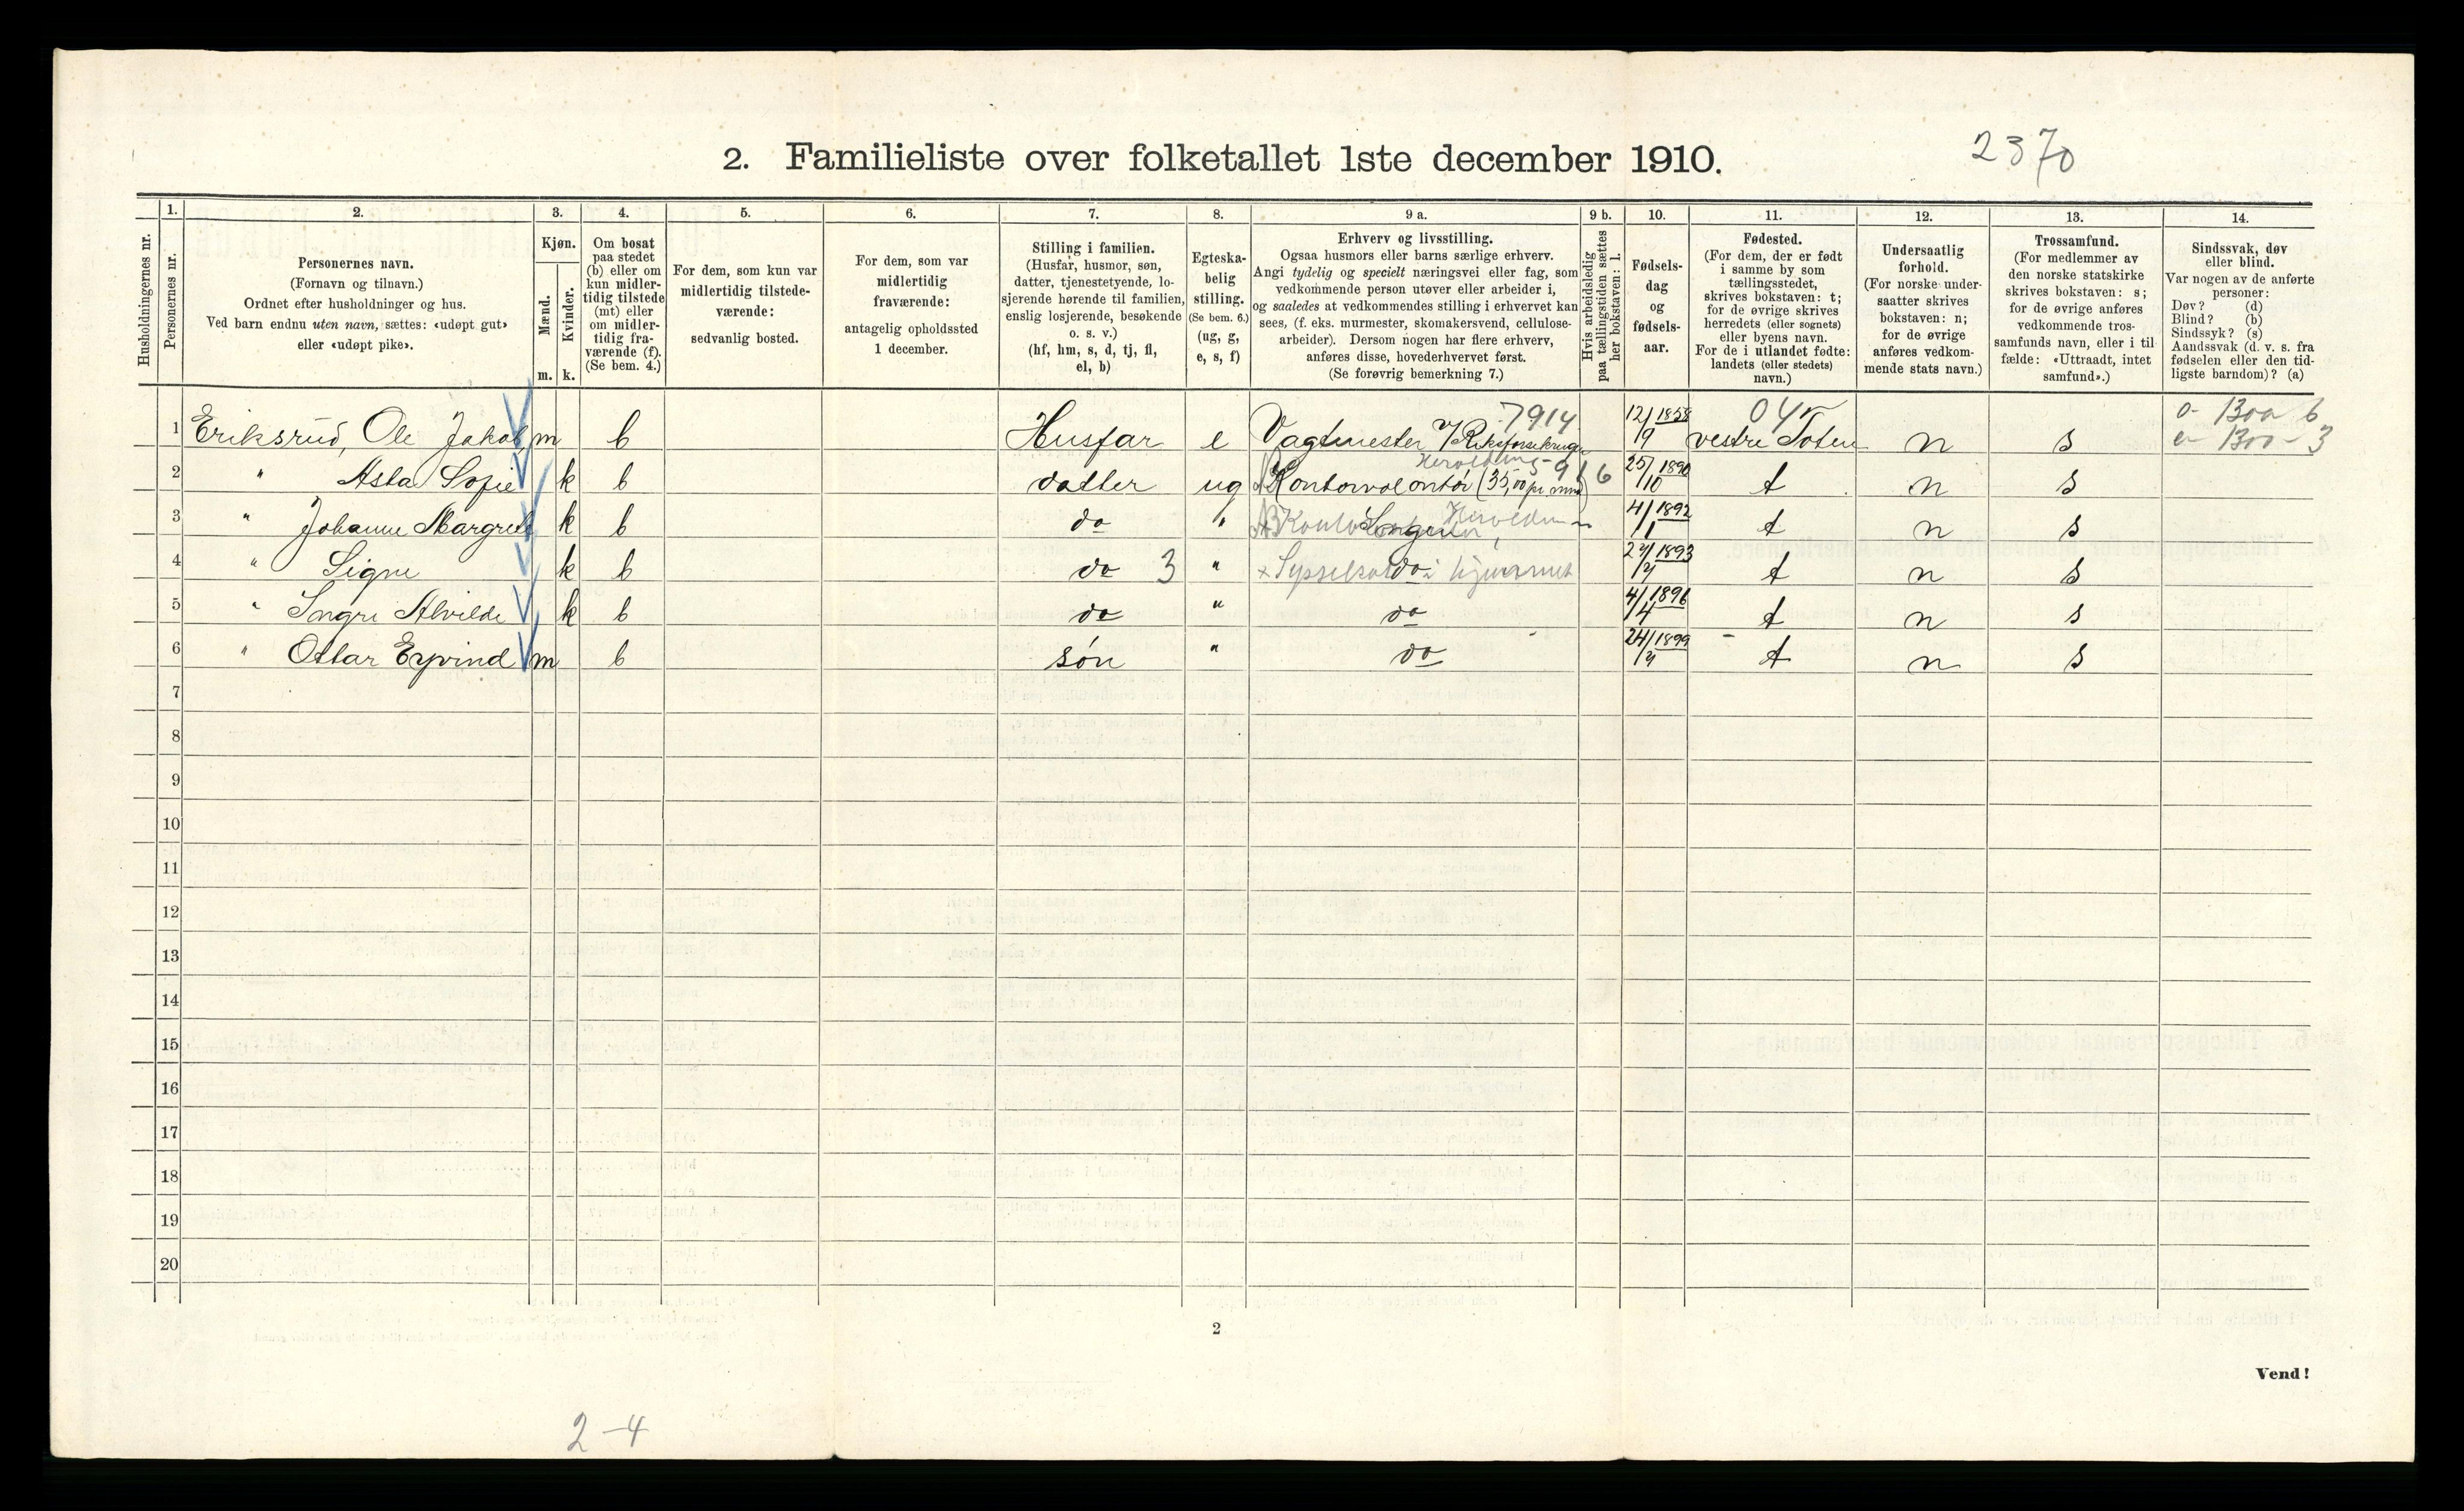 2. Familieliste over folketallet 1ste december 1910.
2370
Husholdningernes nr.
1. Personernes nr.
2. Personernes navn.
(Fornavn og tilnavn.)
Ordnet efter husholdninger og hus.
Ved barn endnu uten navn, sættes: «udøpt gut»
eller «udøpt pike».
3. Kjøn.
Mænd. m.
Kvinder. k.
4. Om bosat
paa stedet
(b) eller om
kun midler-
tidig tilstede
(mt) eller
om midler-
tidig fra-
værende (f).
(Se bem. 4.)
5. For dem, som kun var
midlertidig tilstede-
værende:
sedvanlig bosted.
6. For dem, som var
midlertidig
fraværende:
antagelig opholdssted
1 december.
7. Stilling i familien.
(Husfar, husmor, søn,
datter, tjenestetyende, lo-
sjerende hørende til familien,
enslig losjerende, besøkende
o. s. v.)
(hf, hm, s, d, tj, fl,
el, b)
8. Egteska-
belig
stilling.
(Se bem. 6.)
(ug, g,
e, s, f)
9 a. Erhverv og livsstilling.
Ogsaa husmors eller barns særlige erhverv.
Angi tydelig og specielt næringsvei eller fag, som
vedkommende person utøver eller arbeider i,
og saaledes at vedkommendes stilling i erhvervet kan
sees, (f. eks. murmester, skomakersvend, cellulose-
arbeider). Dersom nogen har flere erhverv,
anføres disse, hovederhvervet først.
(Se forøvrig bemerkning 7.)
9 b. Hvis arbeidsledig
paa tællingstiden sættes
her bokstaven: l.
10. Fødsels-
dag
og
fødsels-
aar.
11. Fødested.
(For dem, der er født
i samme by som
tællingsstedet,
skrives bokstaven: t;
for de øvrige skrives
herredets (eller sognets)
eller byens navn.
For de i utlandet fødte:
landets (eller stedets)
navn.)
12. Undersaatlig
forhold.
(For norske under-
saatter skrives
bokstaven: n;
for de øvrige
anføres vedkom-
mende stats navn.)
13. Trossamfund.
(For medlemmer av
den norske statskirke
skrives bokstaven: s;
for de øvrige anføres
vedkommende tros-
samfunds navn, eller i til-
fælde: «Uttraadt, intet
samfund».)
14. Sindssvak, døv
eller blind.
Var nogen av de anførte
personer:
Døv? (d)
Blind? (b)
Sindssyk? (s)
Aandssvak (d. v. s. fra
fødselen eller den tid-
ligste barndom)? (a)
7914
o- 1300 6
e- 1300 - 3
1 Eriksrud, Ole Jakob, m b Husfar e Vagtmester v/ Riksforsikringen 12/9 1858 vestre Toten n s
2 " Asta Sofie k b datter ug Kontorvolontør (35,00 pr. mnd) 916 25/10 1890 t n s
3 " Johanne Margrete k b do " Ingen 4/1 1892 t n s
4 " Signe k b do 3 " do 1893 t n s
5 " Ingri Alvilde k b do " do 4/4 1896 t n s
6 " Ottar Eyvind m b søn " do 1899 t n s
7
8
9
10
11
12
13
14
15
16
17
18
19
20
2
Vend!
2-4